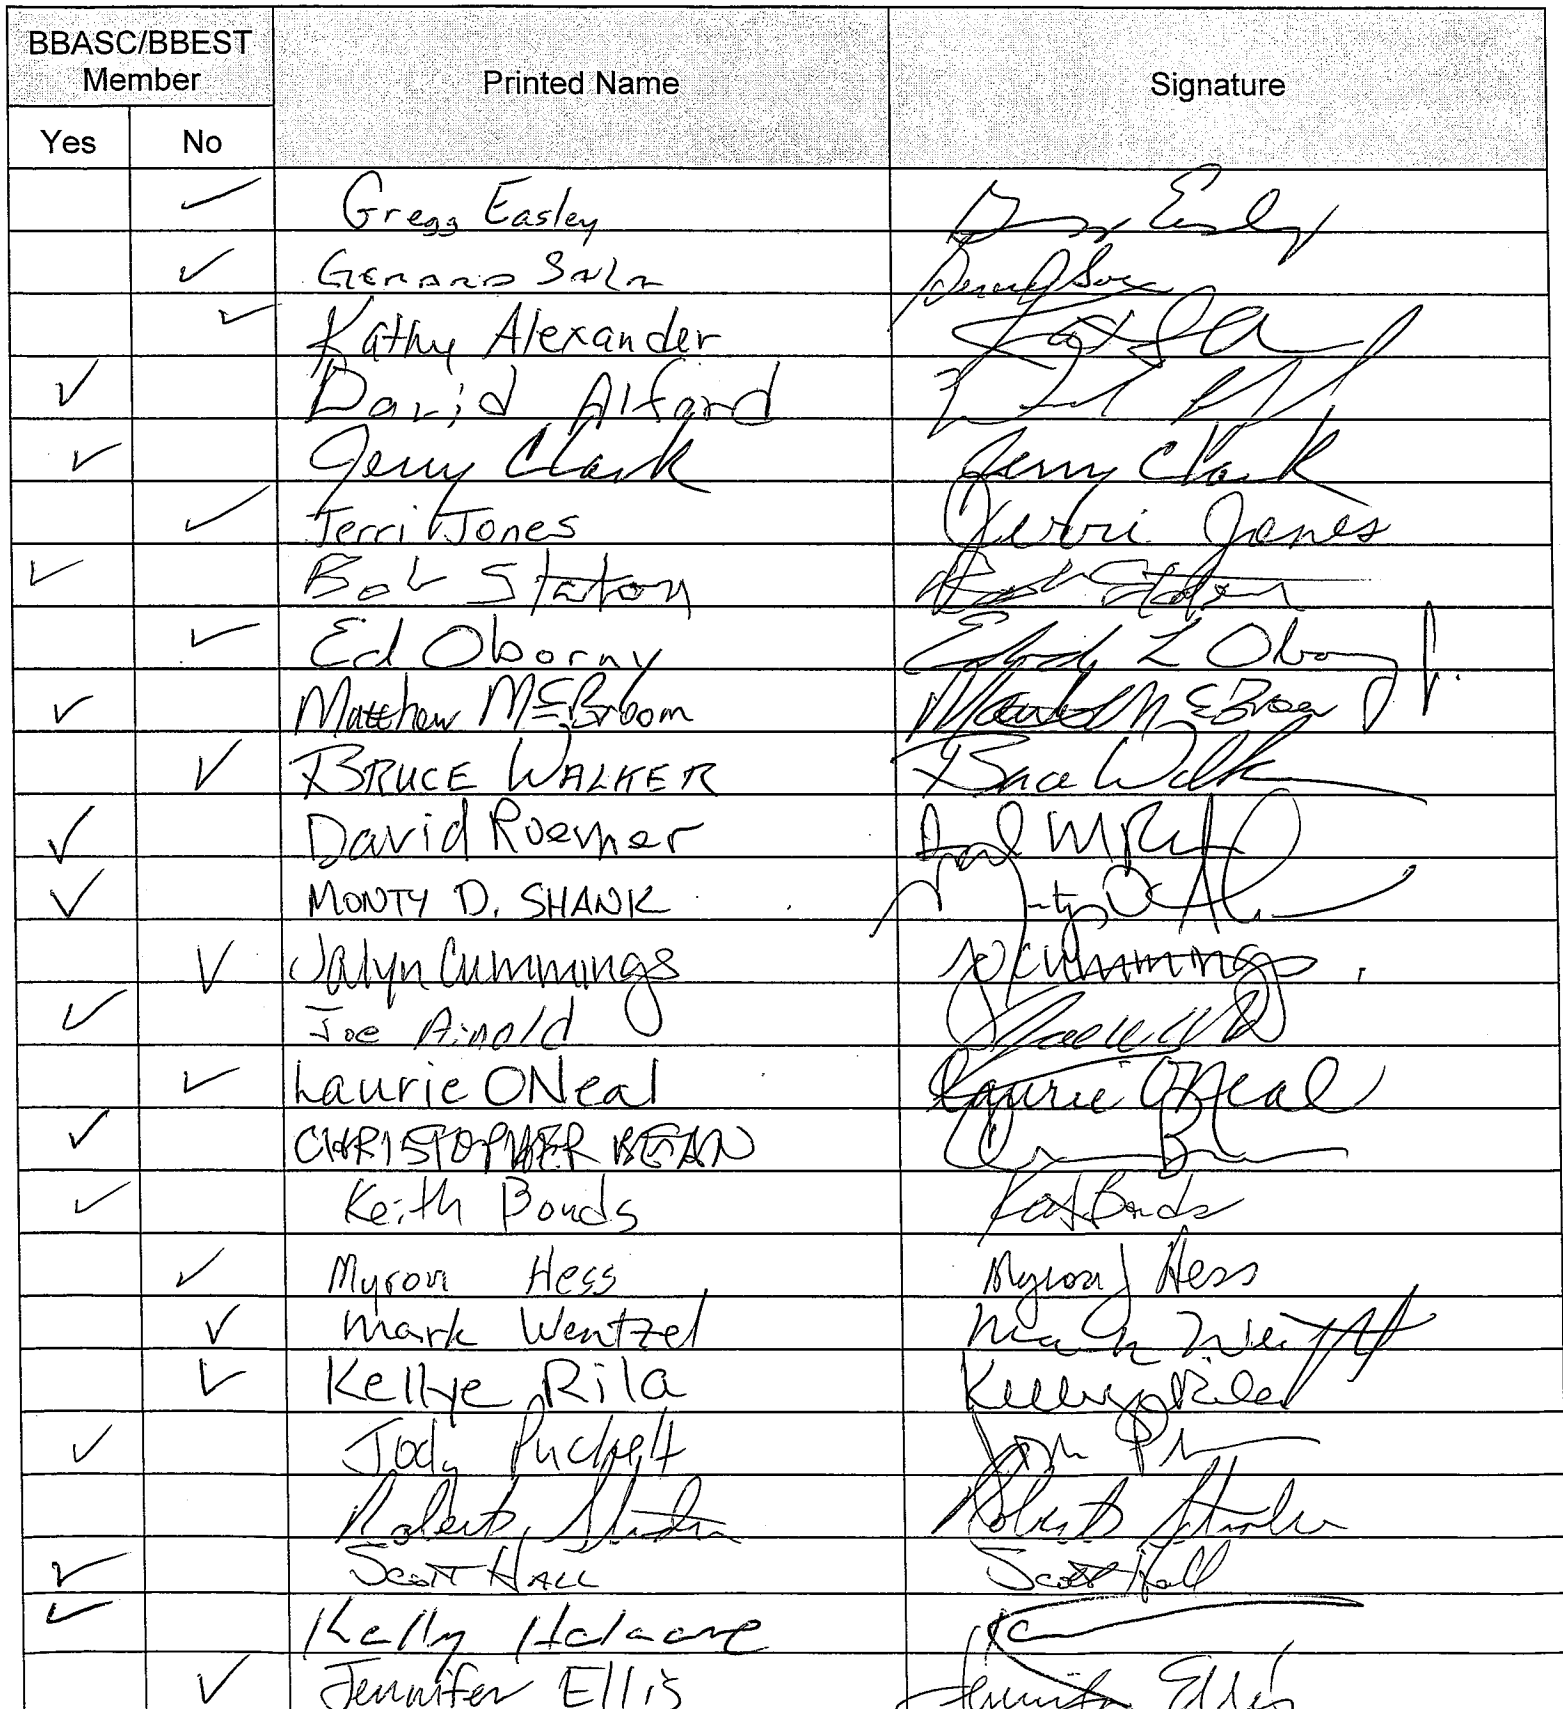 BBASC/BBEST Member Printed Name Signature
Yes No
✓ Gregg Easley Gregg Easley
✓ GERARD SALA Gerard Sala
✓ Kathy Alexander
✓ David Alford
✓ Jerry Clark Jerry Clark
✓ Terri Jones Terri Jones
✓ Bob Staton Bob Staton
✓ Ed Oborny L Oborny Jr.
✓ Matthew McBroom Matthew McBroom
✓ BRUCE WALKER Bruce Walker
✓ David
✓ MONTY D. SHANK Monty D
✓ Jalyn Cummings Cummings
✓ Joe Arnold
✓ Laurie ONeal Laurie O'Neal
✓ CHRISTOPHER BEAN
✓ Keith Bonds Bonds
✓ Myron Hess Myron J Hess
✓ Mark Wentzel Mark
✓ Kellye Rila Kellye Rila
✓ Jody Puckett
Robert Robert
✓ Scott Hall Scott Hall
✓ Kelly
✓ Jennifer Ellis Jennifer Ellis